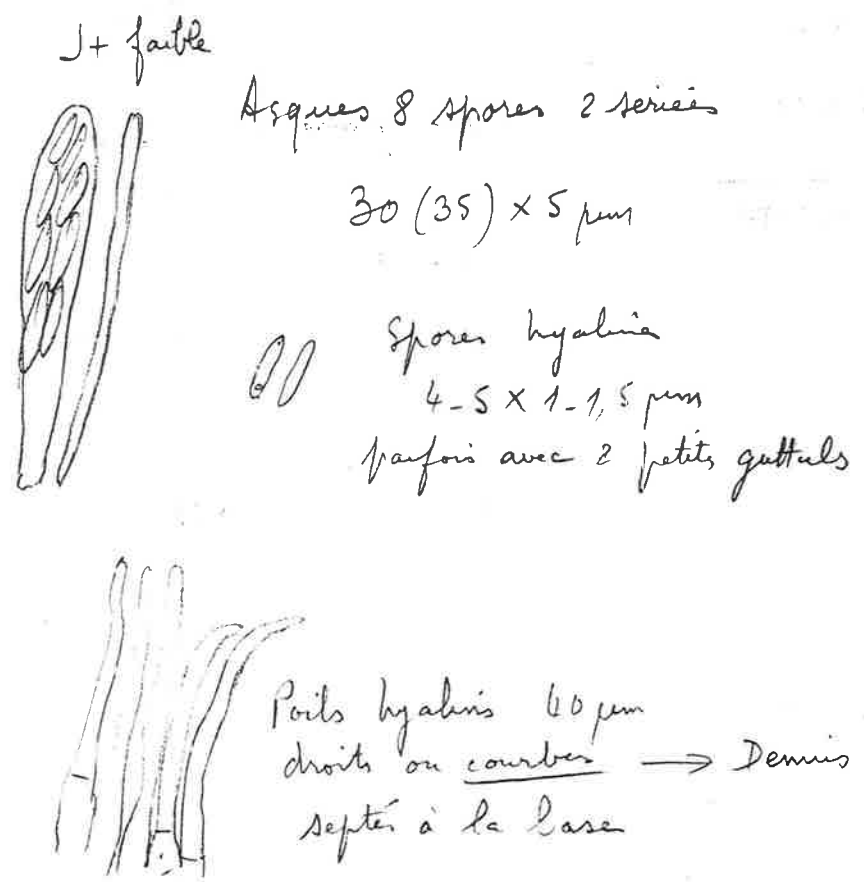 J+ faible
Asques 8 spores 2 seriées
30 (35) × 5 µm
Spores hyalines
4-5 × 1-1,5 µm
parfois avec 2 petits guttuls
Poils hyalins 40 µm
droits ou courbes → Dennis
septés à la base